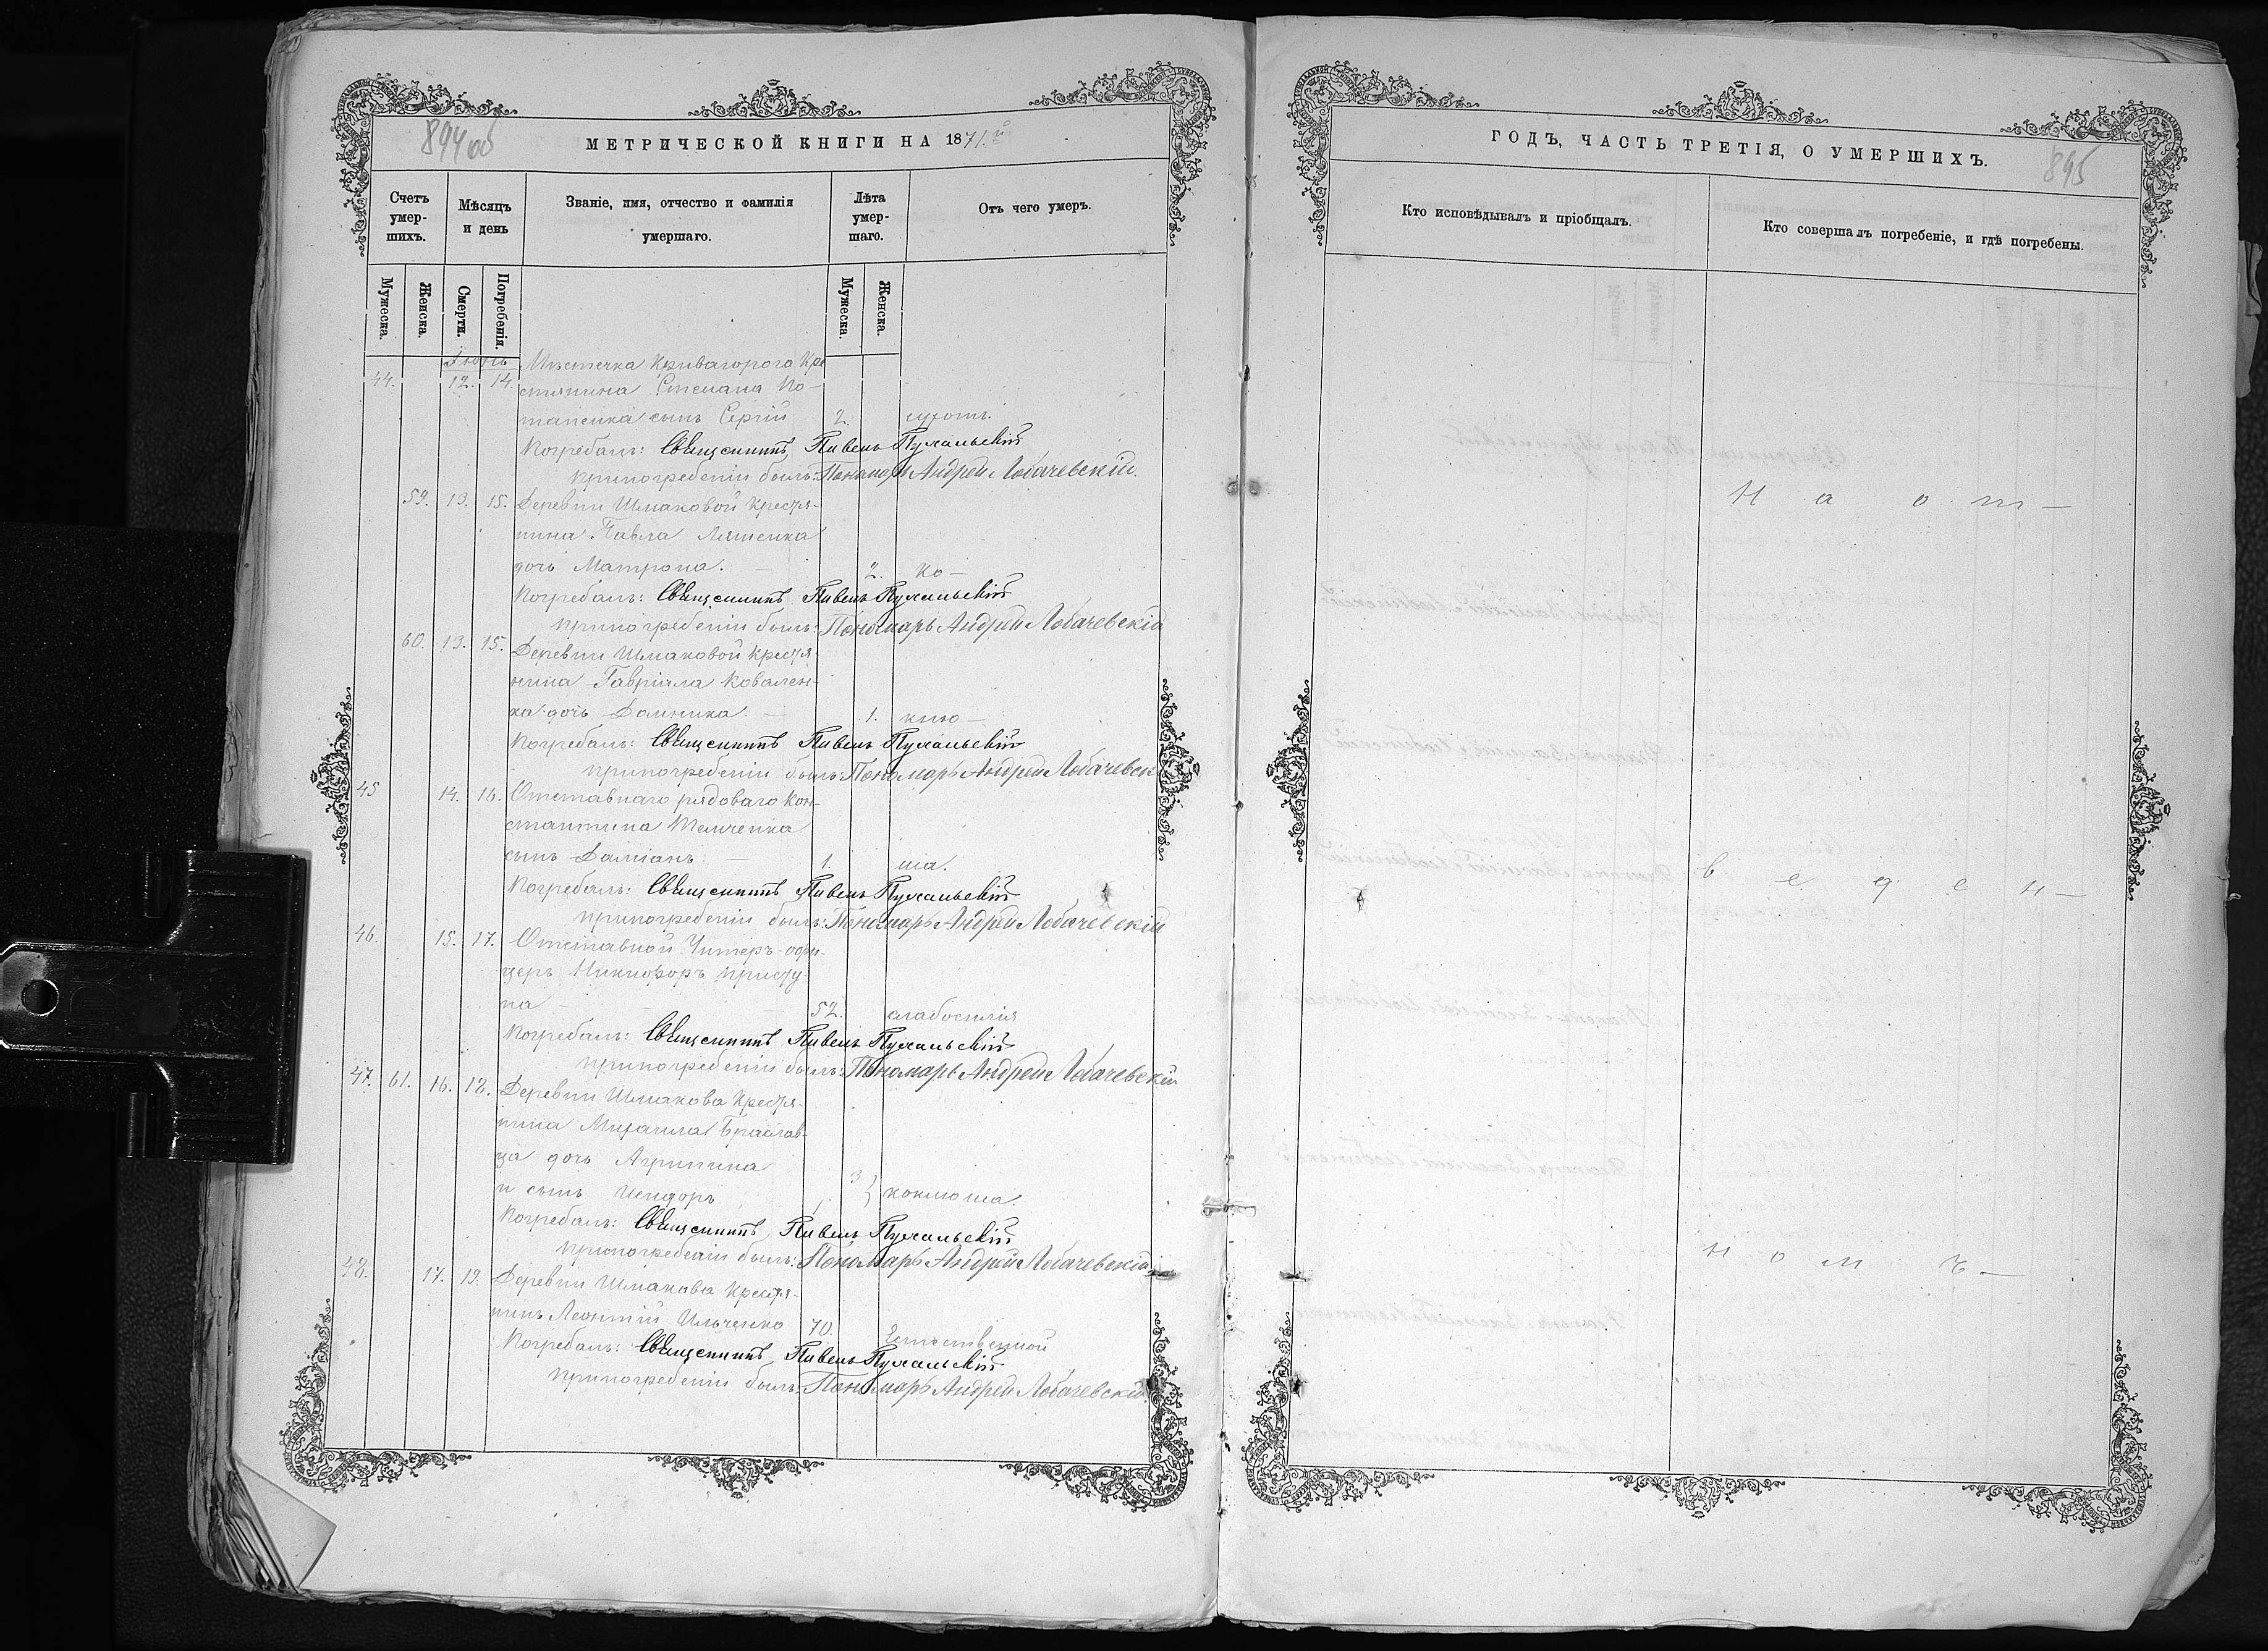 894 об
МЕТРИЧЕСКОЙ КНИГИ НА 1871.й
Счетъ умер-шихъ.
Мѣсяцъ и день
Званіе, имя, отчество и фамилія умершаго.
Лѣта умер-шаго.
Отъ чего умеръ.
Мужеска.
Женска.
Смерти.
Погребенія.
Мужеска
Женска.
Мѣстечка Криваго рога Кре
44. 12. 14. стянина Стефана По-
тапенка сынъ Сергій 2.
Погребалъ: Священникъ Павелъ
при погребеніи былъ: Пономарь Андрей Лобачевскій
59. 13. 15. Деревни Шмаковой Крестья-
нина Павла Ляшенка
дочь Матрона. — 2. Ко—
Погребалъ: Священникъ Павелъ
при погребеніи былъ: Пономарь Андрей Лобачевскій
60. 13. 15. Деревни Шмаковой Крестья
нина Гавріила Ковален-
ка дочь Домника. — 1. клю—
Погребалъ: Священникъ Павелъ
при погребеніи былъ: Пономарь Андрей Лобачевск
45 14. 16. Отставнаго рядоваго Кон-
стантина Темченка
сынъ Даміанъ. — 1. ша.
Погребалъ: Священникъ Павелъ
при погребеніи былъ: Пономарь Андрей Лобачевскій
46. 15. 17. Отставной Унтеръ-офи-
церъ Никифоръ Присту-
па — 52. слабосилія
Погребалъ: Священникъ Павелъ
при погребеніи былъ: Пономарь Андрей Лобачевскій
47. 61. 16. 18. Деревни Шмакова Крестья-
нина Михаила Браслав-
ца дочь Агрипина 3
и сынъ Исидоръ 1 } коклюша.
Погребалъ: Священникъ Павелъ
при погребеніи былъ: Пономарь Андрей Лобачевскій
48. 17. 19. Деревни Шмакова Крестья-
нинъ Леонтій Ильченко 70. Естественной
Погребалъ: Священникъ Павелъ
при погребеніи былъ: Пономарь Андрей Лобачевскій
895
ГОДЪ, ЧАСТЬ ТРЕТІЯ, О УМЕРШИХЪ.
Кто исповѣдывалъ и пріобщалъ.
Кто совершалъ погребеніе, и гдѣ погребены.
Н а о т —
в е д е н —
н о м ъ —